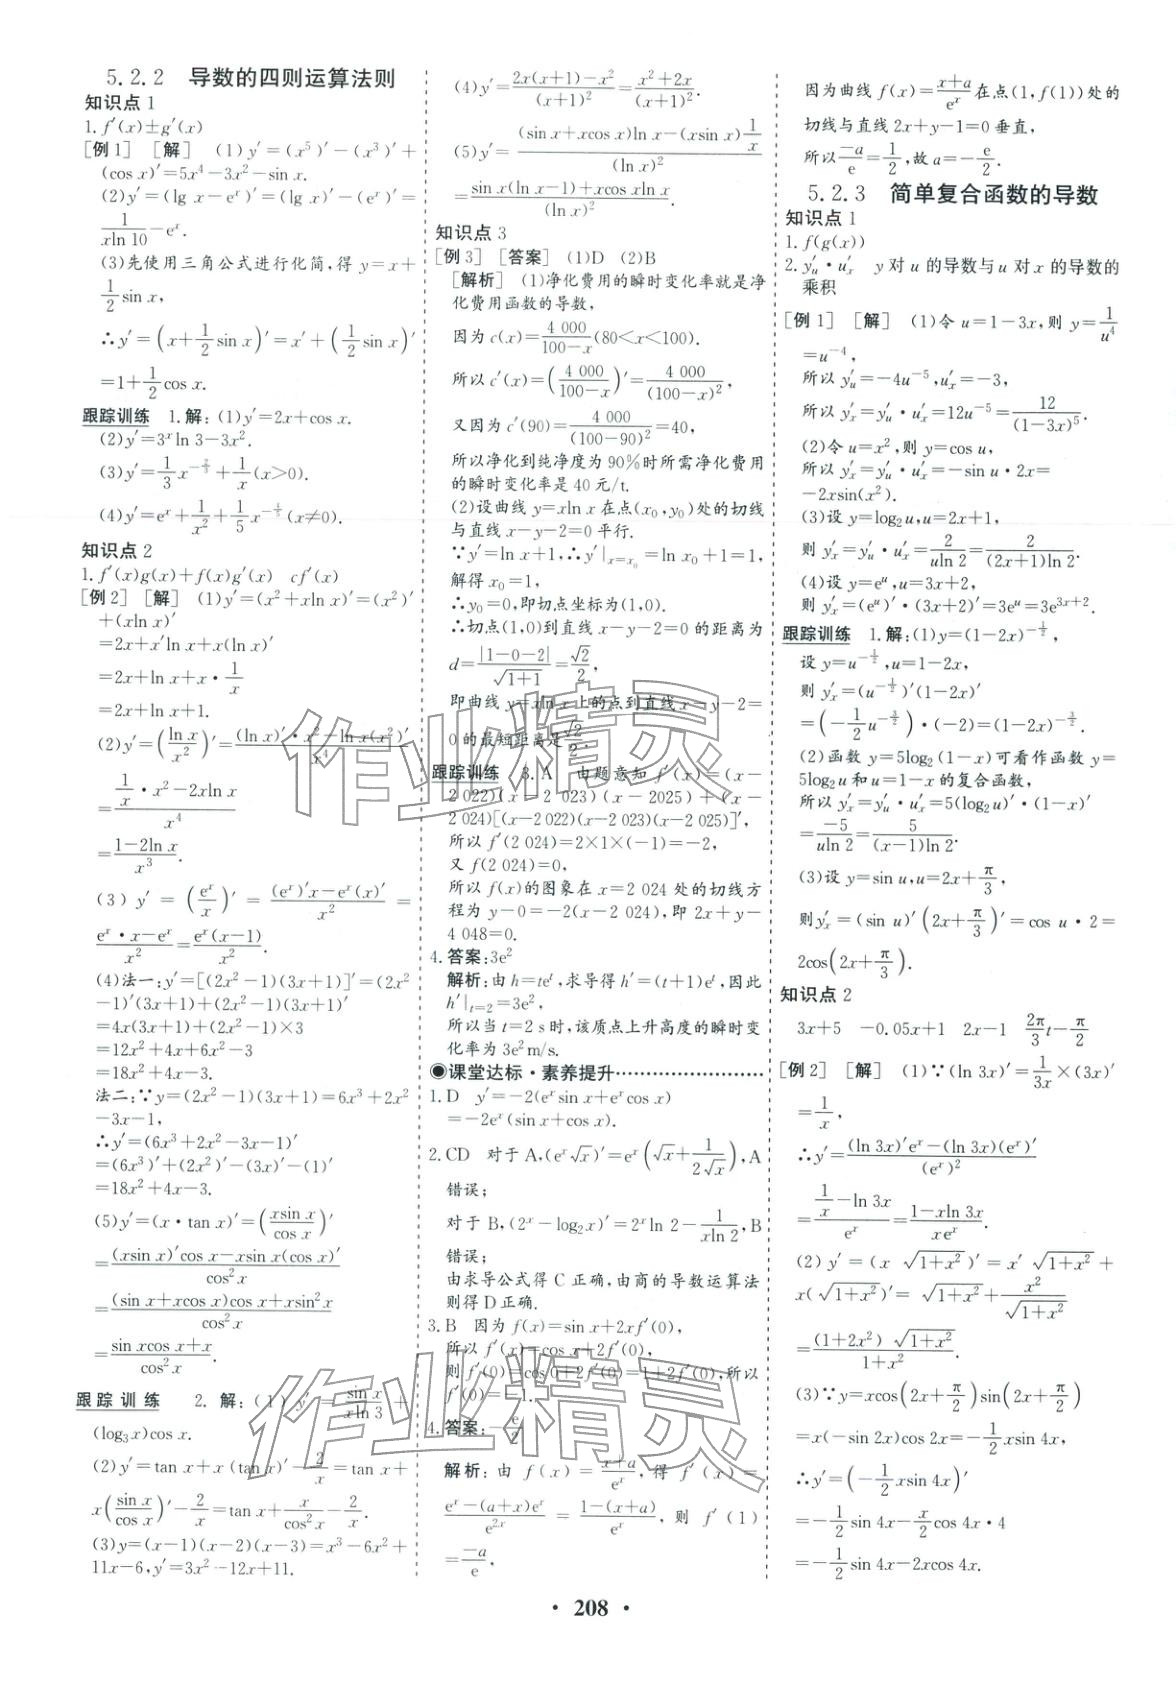 5.2.2 导数的四则运算法则
知识点1
1.f′(x)±g′(x)
[例1] [解] (1)y′=(x⁵)′-(x³)′+
(cos x)′=5x⁴-3x²-sin x.
(2)y′=(lg x-eˣ)′=(lg x)′-(eˣ)′=
1/(xln 10)-eˣ.
(3)先使用三角公式进行化简,得 y=x+
1/2 sin x,
∴y′=(x+1/2 sin x)′=x′+(1/2 sin x)′
=1+1/2 cos x.
跟踪训练 1.解:(1)y′=2x+cos x.
(2)y′=3ˣln 3-3x².
(3)y′=1/3 x^(-2/3)+1/x(x>0).
(4)y′=eˣ+1/x²+1/5 x^(-4/5)(x≠0).
知识点2
1.f′(x)g(x)+f(x)g′(x) cf′(x)
[例2] [解] (1)y′=(x²+xln x)′=(x²)′
+(xln x)′
=2x+x′ln x+x(ln x)′
=2x+ln x+x·1/x
=2x+ln x+1.
(2)y′=(ln x/x²)′=((ln x)′·x²-ln x(x²)′)/x⁴
=(1/x·x²-2xln x)/x⁴
=(1-2ln x)/x³.
(3)y′=(eˣ/x)′=((eˣ)′x-eˣ(x)′)/x²=
(eˣ·x-eˣ)/x²=eˣ(x-1)/x².
(4)法一:y′=[(2x²-1)(3x+1)]′=(2x²
-1)′(3x+1)+(2x²-1)(3x+1)′
=4x(3x+1)+(2x²-1)×3
=12x²+4x+6x²-3
=18x²+4x-3.
法二:∵y=(2x²-1)(3x+1)=6x³+2x²
-3x-1,
∴y′=(6x³+2x²-3x-1)′
=(6x³)′+(2x²)′-(3x)′-(1)′
=18x²+4x-3.
(5)y′=(x·tan x)′=(xsin x/cos x)′
=((xsin x)′cos x-xsin x(cos x)′)/cos²x
=((sin x+xcos x)cos x+xsin²x)/cos²x
=(sin xcos x+x)/cos²x.
跟踪训练 2.解:(1)y′=sin x/(xln 3)+
(log₃x)cos x.
(2)y′=tan x+x(tan x)′-2/x=tan x+
x(sin x/cos x)′-2/x=tan x+x/cos²x-2/x.
(3)y=(x-1)(x-2)(x-3)=x³-6x²+
11x-6,y′=3x²-12x+11.
(4)y′=(2x(x+1)-x²)/(x+1)²=(x²+2x)/(x+1)².
(5)y′=((sin x+xcos x)ln x-(xsin x)1/x)/(ln x)²
=(sin x(ln x-1)+xcos xln x)/(ln x)².
知识点3
[例3] [答案] (1)D (2)B
[解析] (1)净化费用的瞬时变化率就是净
化费用函数的导数,
因为c(x)=4 000/(100-x)(80<x<100).
所以c′(x)=(4 000/(100-x))′=4 000/(100-x)²,
又因为c′(90)=4 000/(100-90)²=40,
所以净化到纯净度为90%时所需净化费用
的瞬时变化率是40元/t.
(2)设曲线 y=xln x 在点(x₀,y₀)处的切线
与直线x-y-2=0平行.
∵y′=ln x+1,∴y′|x=x₀=ln x₀+1=1,
解得x₀=1,
∴y₀=0,即切点坐标为(1,0).
∴切点(1,0)到直线x-y-2=0的距离为
d=|1-0-2|/√(1+1)=√2/2,
即曲线y=xln x上的点到直线x-y-2=
0的最短距离是√2/2.
跟踪训练 3.A 由题意知 f′(x)=(x-
2 022)(x-2 023)(x-2025)+(x-
2 024)[(x-2 022)(x-2 023)(x-2 025)]′,
所以f′(2 024)=2×1×(-1)=-2,
又f(2 024)=0,
所以f(x)的图象在x=2 024处的切线方
程为y-0=-2(x-2 024),即2x+y-
4 048=0.
4.答案:3e²
解析:由h=teᵗ,求导得h′=(t+1)eᵗ,因此
h′|t=2=3e²,
所以当t=2 s时,该质点上升高度的瞬时变
化率为3e² m/s.
◉课堂达标·素养提升
1.D y′=-2(eˣsin x+eˣcos x)
=-2eˣ(sin x+cos x).
2.CD 对于A,(eˣ√x)′=eˣ(√x+1/(2√x)),A
错误;
对于B,(2ˣ-log₂x)′=2ˣln 2-1/(xln 2),B
错误;
由求导公式得C正确,由商的导数运算法
则得D正确.
3.B 因为f(x)=sin x+2xf′(0),
所以f′(x)=cos x+2f′(0),
则f′(0)=cos 0+2f′(0)=1+2f′(0),所以
f′(0)=-1.
4.答案:-e/2
解析:由 f(x)=(x+a)/eˣ,得 f′(x)=
(eˣ-(a+x)eˣ)/e²ˣ=(1-(x+a))/eˣ,则 f′(1)
=-a/e,
因为曲线f(x)=(x+a)/eˣ在点(1,f(1))处的
切线与直线2x+y-1=0垂直,
所以-a/e=1/2,故a=-e/2.
5.2.3 简单复合函数的导数
知识点1
1.f(g(x))
2.y′ᵤ·u′ₓ y对u的导数与u对x的导数的
乘积
[例1] [解] (1)令u=1-3x,则y=1/u⁴
=u⁻⁴,
所以y′ᵤ=-4u⁻⁵,u′ₓ=-3,
所以y′ₓ=y′ᵤ·u′ₓ=12u⁻⁵=12/(1-3x)⁵.
(2)令u=x²,则y=cos u,
所以y′ₓ=y′ᵤ·u′ₓ=-sin u·2x=
-2xsin(x²).
(3)设y=log₂u,u=2x+1,
则y′ₓ=y′ᵤ·u′ₓ=2/(uln 2)=2/((2x+1)ln 2).
(4)设y=eᵘ,u=3x+2,
则y′ₓ=(eᵘ)′·(3x+2)′=3eᵘ=3e^(3x+2).
跟踪训练 1.解:(1)y=(1-2x)^(-1/2),
设y=u^(-1/2),u=1-2x,
则y′ₓ=(u^(-1/2))′(1-2x)′
=(-1/2 u^(-3/2))·(-2)=(1-2x)^(-3/2).
(2)函数y=5log₂(1-x)可看作函数y=
5log₂u和u=1-x的复合函数,
所以y′ₓ=y′ᵤ·u′ₓ=5(log₂u)′·(1-x)′
=-5/(uln 2)=5/((x-1)ln 2).
(3)设y=sin u,u=2x+π/3,
则y′ₓ=(sin u)′(2x+π/3)′=cos u·2=
2cos(2x+π/3).
知识点2
3x+5 -0.05x+1 2x-1 2π/3 t-π/2
[例2] [解] (1)∵(ln 3x)′=1/3x×(3x)′
=1/x,
∴y′=((ln 3x)′eˣ-(ln 3x)(eˣ)′)/(eˣ)²
=(1/x-ln 3x)/eˣ=(1-xln 3x)/xeˣ.
(2)y′=(x√(1+x²))′=x′√(1+x²)+
x(√(1+x²))′=√(1+x²)+x²/√(1+x²)
=(1+2x²)√(1+x²)/(1+x²).
(3)∵y=xcos(2x+π/2)sin(2x+π/2)
=x(-sin 2x)cos 2x=-1/2 xsin 4x,
∴y′=(-1/2 xsin 4x)′
=-1/2 sin 4x-x/2 cos 4x·4
=-1/2 sin 4x-2xcos 4x.
作业精灵
作业精灵
· 208 ·